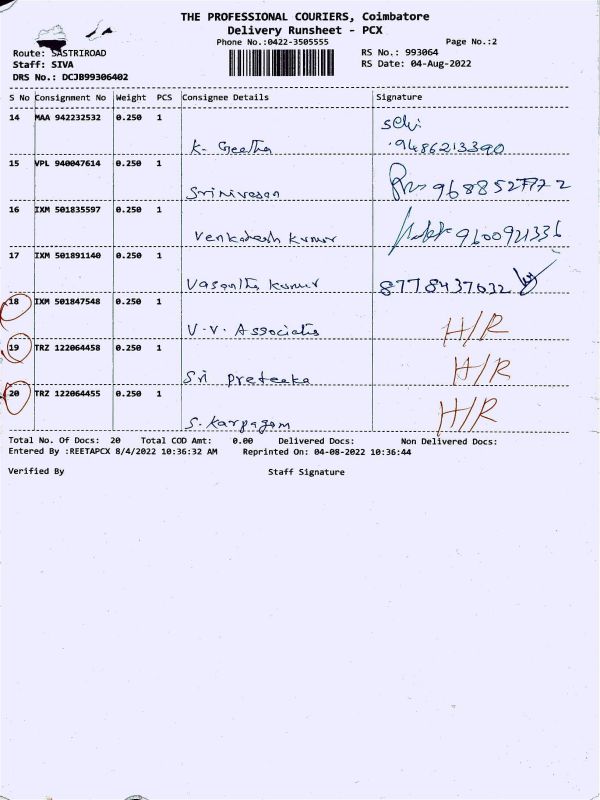 THE PROFESSIONAL COURIERS, Coimbatore
Delivery Runsheet - PCX
Phone No.:0422-3505555
Page No.:2
Route: SASTRIROAD
RS No.: 993064
Staff: SIVA
RS Date: 04-Aug-2022
DRS No.: DCJB99306402
S No Consignment No Weight PCS Consignee Details Signature
14 MAA 942232532 0.250 1
K. Geetha
Selvi
9486213390
15 VPL 940047614 0.250 1
Srinivasan
9688527772
16 IXM 501835597 0.250 1
Venkatesh Kumar
9600921336
17 IXM 501891140 0.250 1
Vasantha Kumar
8778437632
18 IXM 501847548 0.250 1
V.V. Associates H/R
19 TRZ 122064458 0.250 1
Sri H/R
20 TRZ 122064455 0.250 1
S. Karpagam H/R
Total No. Of Docs: 20 Total COD Amt: 0.00 Delivered Docs: Non Delivered Docs:
Entered By :REETAPCX 8/4/2022 10:36:32 AM Reprinted On: 04-08-2022 10:36:44
Verified By Staff Signature